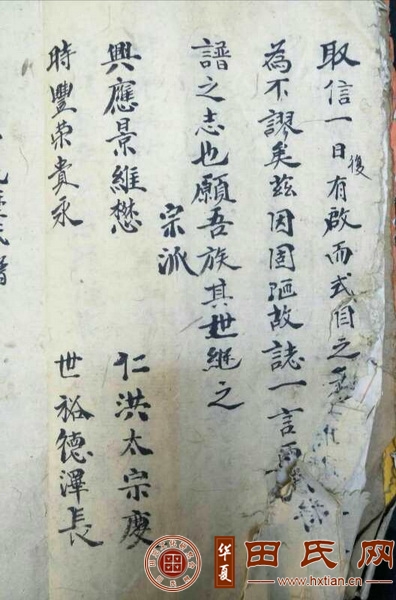 取信一日後有啟而式目之
為不謬矣茲因固陋故誌一言
譜之志也願吾族其世継之
宗派
興應景維懋 仁洪太宗慶
時豐荣貴永 世裕德澤長
氏譜
华夏
田氏网
www.hxtian.cn